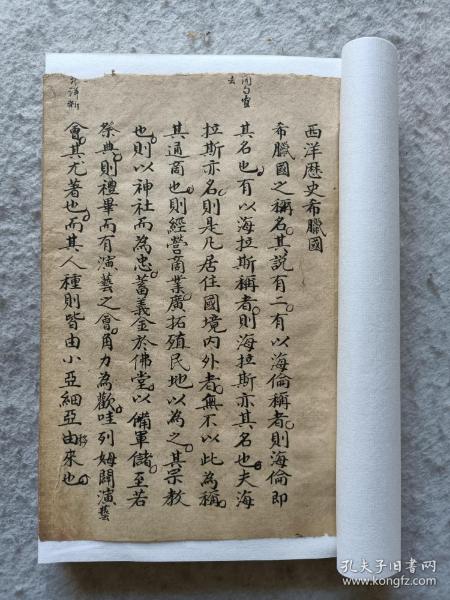 西洋歷史希臘國
希臘國之稱名其說有二有以海倫稱者則海倫即
其名也有以海拉斯稱者則海拉斯亦其名也夫海
拉斯亦名則是凡居住國境內外者無不以此為稱
其通商也則經營商業廣拓殖民地以為之其宗教
也則以神社而為忠蓄義金於佛堂以備軍儲至若
祭典則禮畢而有演藝之會角力為歡哇列姆開演藝
會其尤著也而其人種則皆由小亞細亞由移來也
去
孔夫子旧书网
kongfz.com